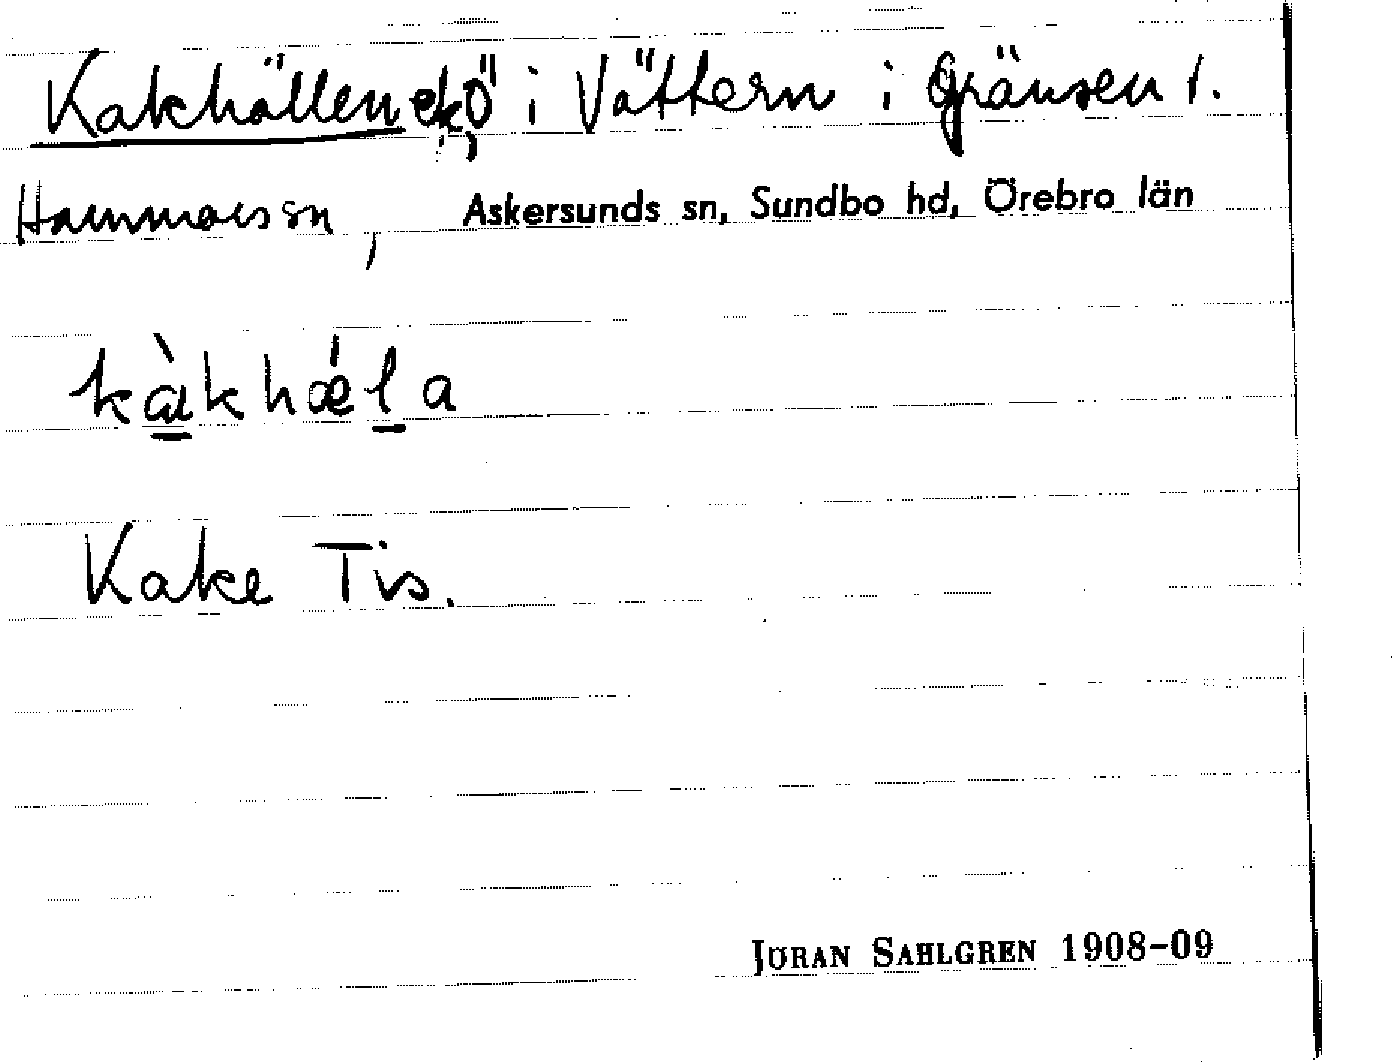 Kakhällen, ö i Vättern i gränsen t.
Hammars sn, Askersunds sn, Sundbo hd, Örebro län
kàkhǽla
Kake Tis.
JÖRAN SAHLGREN 1908-09